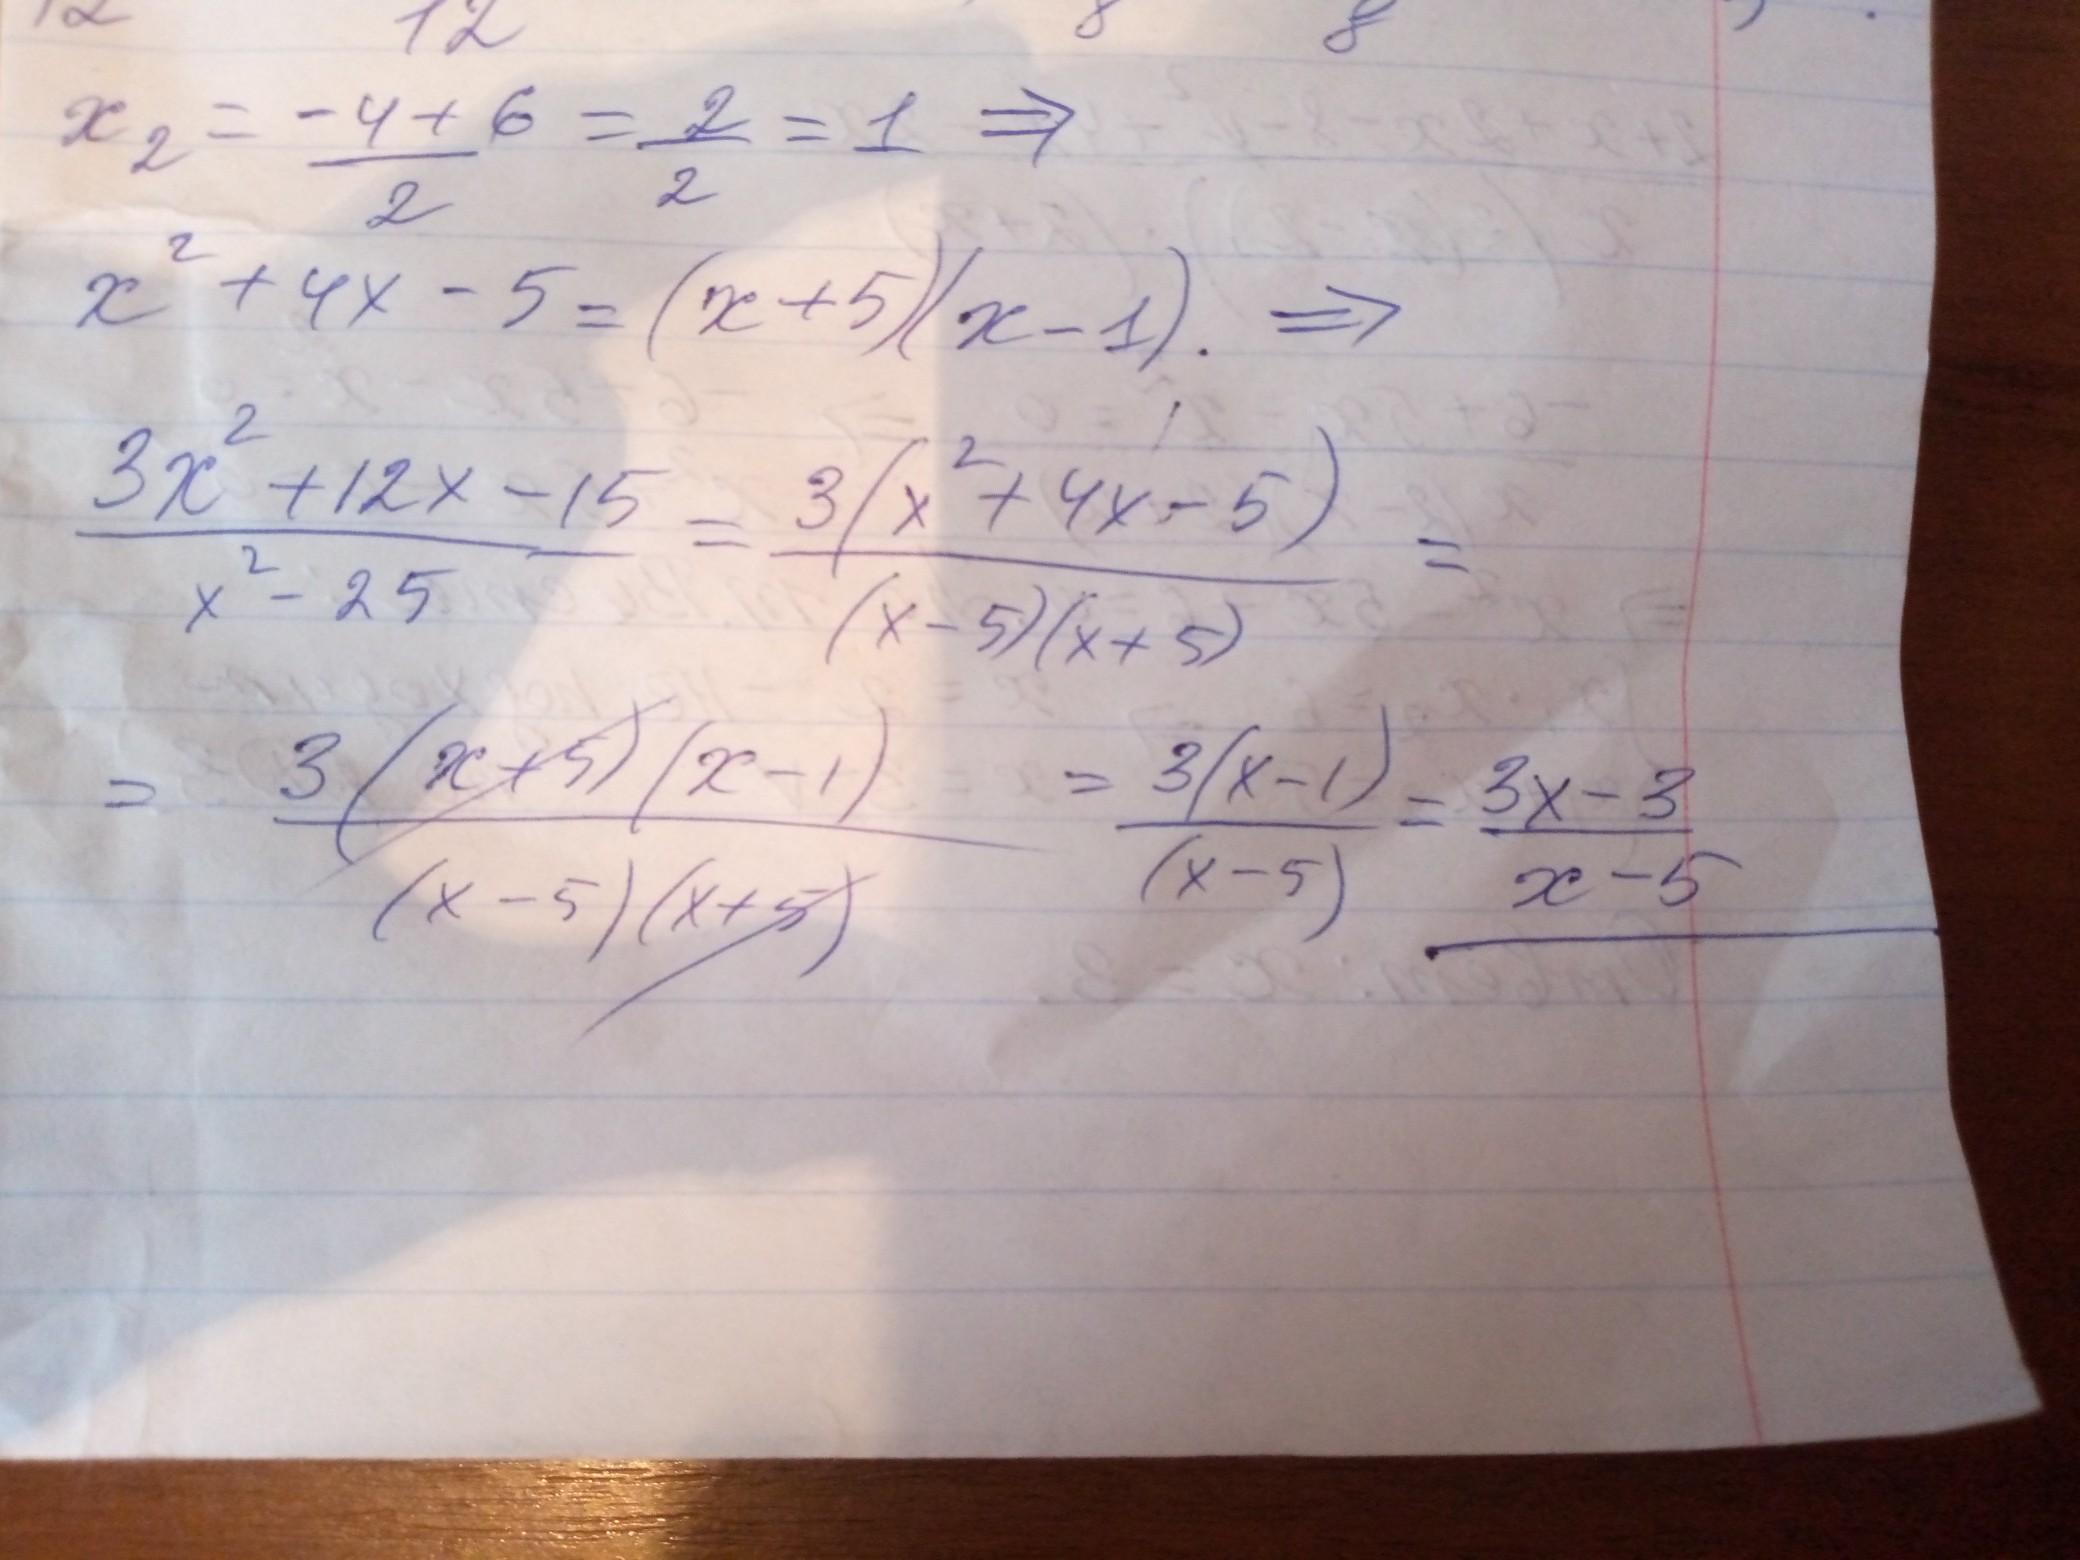 12 12 8 8
x₂ = (-4+6)/2 = 2/2 = 1 ⇒
x² + 4x - 5 = (x+5)(x-1). ⇒
(3x² + 12x - 15)/(x² - 25) = 3(x² + 4x - 5)/((x-5)(x+5)) =
= 3(x+5)(x-1)/((x-5)(x+5)) = 3(x-1)/(x-5) = (3x-3)/(x-5)